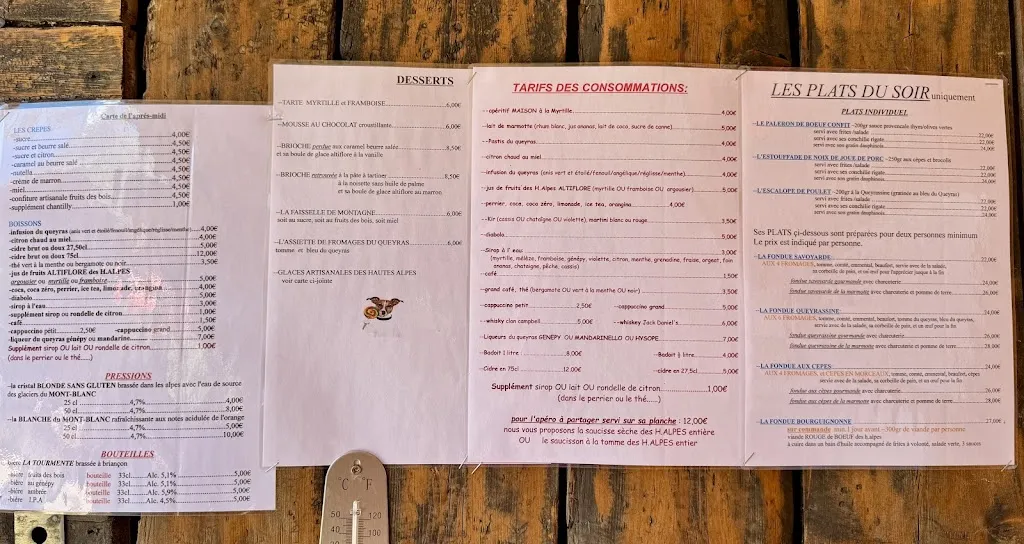 Carte de l'après-midi
LES CREPES
-sucre 4,00€
-sucre et beurre salé 4,50€
-sucre et citron 4,50€
-caramel au beurre salé 4,50€
-nutella 4,50€
-crème de marron 4,50€
-miel 4,50€
-confiture artisanale fruits des bois 4,50€
-supplément chantilly 1,00€
BOISSONS
-infusion du queyras (anis vert et étoilé/fenouil/angélique/réglisse/menthe) 4,00€
-citron chaud au miel 4,00€
-cidre brut ou doux 27,50cl 5,00€
-cidre brut ou doux 75cl 12,00€
-thé vert à la menthe ou bergamote ou noir 3,50€
-jus de fruits ALTIFLORE des H.ALPES
argousier ou myrtille ou framboise 5,00€
-coca, coca zéro, perrier, ice tea, limonade, orangina 4,00€
-diabolo 5,00€
-sirop à l'eau 3,00€
-supplément sirop ou rondelle de citron 1,00€
-café 1,50€
-cappuccino petit 2,50€ -cappuccino grand 5,00€
-liqueur du queyras génépy ou mandarine 7,00€
Supplément sirop OU lait OU rondelle de citron 1,00€
(dans le perrier ou le thé.....)
PRESSIONS
-la cristal BLONDE SANS GLUTEN brassée dans les alpes avec l'eau de source
des glaciers du MONT-BLANC
25 cl 4,7% 4,00€
50 cl 4,7% 8,00€
-la BLANCHE du MONT-BLANC rafraîchissante aux notes acidulée de l'orange
25 cl 4,7% 5,00€
50 cl 4,7% 10,00€
BOUTEILLES
bière LA TOURMENTE brassée à briançon
-bière fruits des bois bouteille 33cl Alc. 5,1% 5,00€
-bière au génépy bouteille 33cl Alc. 5,1% 5,00€
-bière ambrée bouteille 33cl Alc. 5,9% 5,00€
-bière I.P.A bouteille 33cl Alc. 4,5% 5,00€
DESSERTS
-TARTE MYRTILLE et FRAMBOISE 6,00€
-MOUSSE AU CHOCOLAT croustillante 6,00€
-BRIOCHE perdue aux caramel beurre salée 8,50€
et sa boule de glace altiflore à la vanille
-BRIOCHE retrouvée à la pâte à tartiner 8,50€
à la noisette sans huile de palme
et sa boule de glace altiflore au marron
-LA FAISSELLE DE MONTAGNE 6,00€
soit au sucre, soit au fruits des bois, soit miel
-L'ASSIETTE DE FROMAGES DU QUEYRAS 6,00€
tomme et bleu du queyras
-GLACES ARTISANALES DES HAUTES ALPES
voir carte ci-jointe
TARIFS DES CONSOMMATIONS:
--apéritif MAISON à la Myrtille 4,00€
--lait de marmotte (rhum blanc, jus ananas, lait de coco, sucre de canne) 5,00€
--Pastis du queyras 4,00€
--citron chaud au miel 4,00€
--infusion du queyras (anis vert et étoilé/fenouil/angélique/réglisse/menthe) 4,00€
--jus de fruits des H.Alpes ALTIFLORE (myrtille OU framboise OU argousier) 5,00€
--perrier, coca, coca zéro, limonade, ice tea, orangina 4,00€
--Kir (cassis OU châtaîgne OU violette), martini blanc ou rouge 3,50€
--diabolo 5,00€
--Sirop à l'eau 3,00€
(myrtille, mélèze, framboise, génépy, violette, citron, menthe, grenadine, fraise, orgeat, foin
ananas, chataigne, pêche, cassis)
--café 1,50€
--grand café, thé (bergamota OU vert à la menthe OU noir) 3,50€
--cappuccino petit 2,50€ --cappuccino grand 5,00€
--whisky clan campbell 5,00€ --whiskey Jack Daniel's 6,00€
--Liqueurs du queyras GENEPY OU MANDARINELLO OU HYSOPE 7,00€
--Badoit 1 litre 8,00€ --Badoit ½ litre 4,00€
--Cidre en 75cl 12,00€ --cidre en 27,5cl 5,00€
Supplément sirop OU lait OU rondelle de citron 1,00€
(dans le perrier ou le thé......)
pour l'apéro à partager servi sur sa planche : 12,00€
nous vous proposons la saucisse sèche des H.ALPES entière
OU le saucisson à la tomme des H.ALPES entier
LES PLATS DU SOIR uniquement
PLATS INDIVIDUEL
-LE PALERON DE BOEUF CONFIT ~200gr sauce provencale thym/olives vertes
servi avec frites /salade 22,00€
servi avec ses conchilia rigate 22,00€
servi avec son gratin dauphinois 24,00€
-L'ESTOUFFADE DE NOIX DE JOUE DE PORC ~250g aux cèpes et brocolis
servi avec frites /salade 22,00€
servi avec ses conchilia rigate 22,00€
servi avec son gratin dauphinois 24,00€
-L'ESCALOPE DE POULET ~200gr à la Queyrassine (gratinée au bleu du Queyras)
servi avec frites/salade 22,00€
servi avec ses conchilia rigate 22,00€
servi avec son gratin dauphinois 24,00€
Ses PLATS çi-dessous sont préparées pour deux personnes minimum
Le prix est indiqué par personne.
-LA FONDUE SAVOYARDE 22,00€
AUX 4 FROMAGES, tomme, comté, emmental, beaufort, servie avec de la salade,
sa corbeille de pain, et un œuf pour l'apprécier jusque à la fin
fondue savoyarde gourmande avec charcuterie 24,00€
fondue savoyarde de la marmotte avec charcuterie et pomme de terre 26,00€
-LA FONDUE QUEYRASSINE 24,00€
AUX 6 FROMAGES, tomme, comté, emmental, beaufort, tomme du queyras, bleu du queyras,
servie avec de la salade, sa corbeille de pain, et un œuf pour la fin
fondue queyrassine gourmande avec charcuterie 26,00€
fondue queyrassine de la marmotte avec charcuterie et pomme de terre 28,00€
-LA FONDUE AUX CEPES 24,00€
AUX 4 FROMAGES, et CEPES EN MORCEAUX, tomme, comté, emmental, beaufort, cèpes
servie avec de la salade, sa corbeille de pain, et un œuf pour la fin
fondue aux cèpes gourmande avec charcuterie 26,00€
fondue aux cèpes de la marmotte avec charcuterie et pomme de terre 28,00€
-LA FONDUE BOURGUIGNONNE 27,00€
sur commande mini.1 jour avant ~300gr de viande par personne
viande ROUGE de BOEUF des h.alpes
à cuire dans un bain d'huile accompagné de frites à volonté, salade verte, 3 sauces
°C °F
50 120
40 100